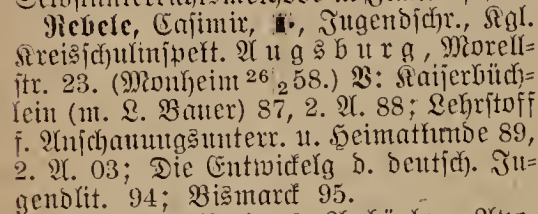 Nebele, Casimir, I., Jugendschr., Kgl.
Kreisschulinspekt. Augsburg, Morell-
str. 23. (Monheim 26/2 58.) V: Kaiserbüch-
lein (m. L. Bauer) 87, 2. A. 88; Lehrstoff
f. Anschauungsunterr. u. Heimatkunde 89,
2. A. 03; Die Entwickelg d. deutsch. Ju-
gendlit. 94; Bismarck 95.